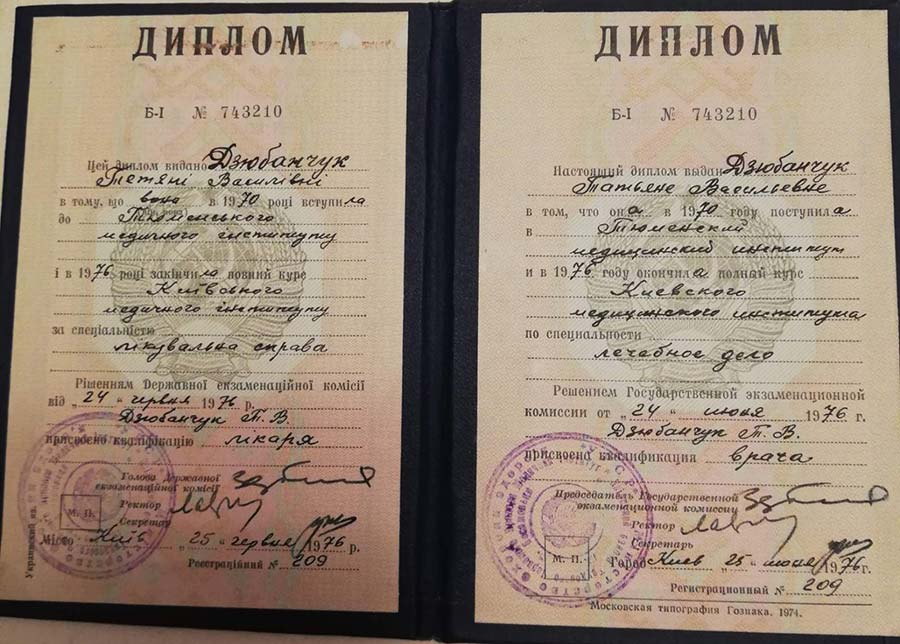 ДИПЛОМ
Б-I № 743210
Цей диплом видано Дзюбанчук
Тетяні Василівні
в тому, що вона в 1970 році вступила
до Тюменського
медичного інституту
і в 1976 році закінчила повний курс
Київського
медичного інституту
за спеціальністю
лікувальна справа
Рішенням Державної екзаменаційної комісії
від „24“ червня 1976 р.
Дзюбанчук Т. В.
присвоєно кваліфікацію лікаря
Голова Державної
екзаменаційної комісії
Ректор
М. П.
Секретар
Місто Київ „25“ червня 1976 р.
Реєстраційний № 209
ДИПЛОМ
Б-I № 743210
Настоящий диплом выдан Дзюбанчук
Татьяне Васильевне
в том, что она в 1970 году поступила
в Тюменский
медицинский институт
и в 1976 году окончила полный курс
Киевского
медицинского института
по специальности
лечебное дело
Решением Государственной экзаменационной
комиссии от „24“ июня 1976 г.
Дзюбанчук Т. В.
присвоена квалификация врача
Председатель Государственной
экзаменационной комиссии
Ректор
Секретарь
М. П.
Город Киев „25“ июня 1976 г.
Регистрационный № 209
Московская типография Гознака. 1974.